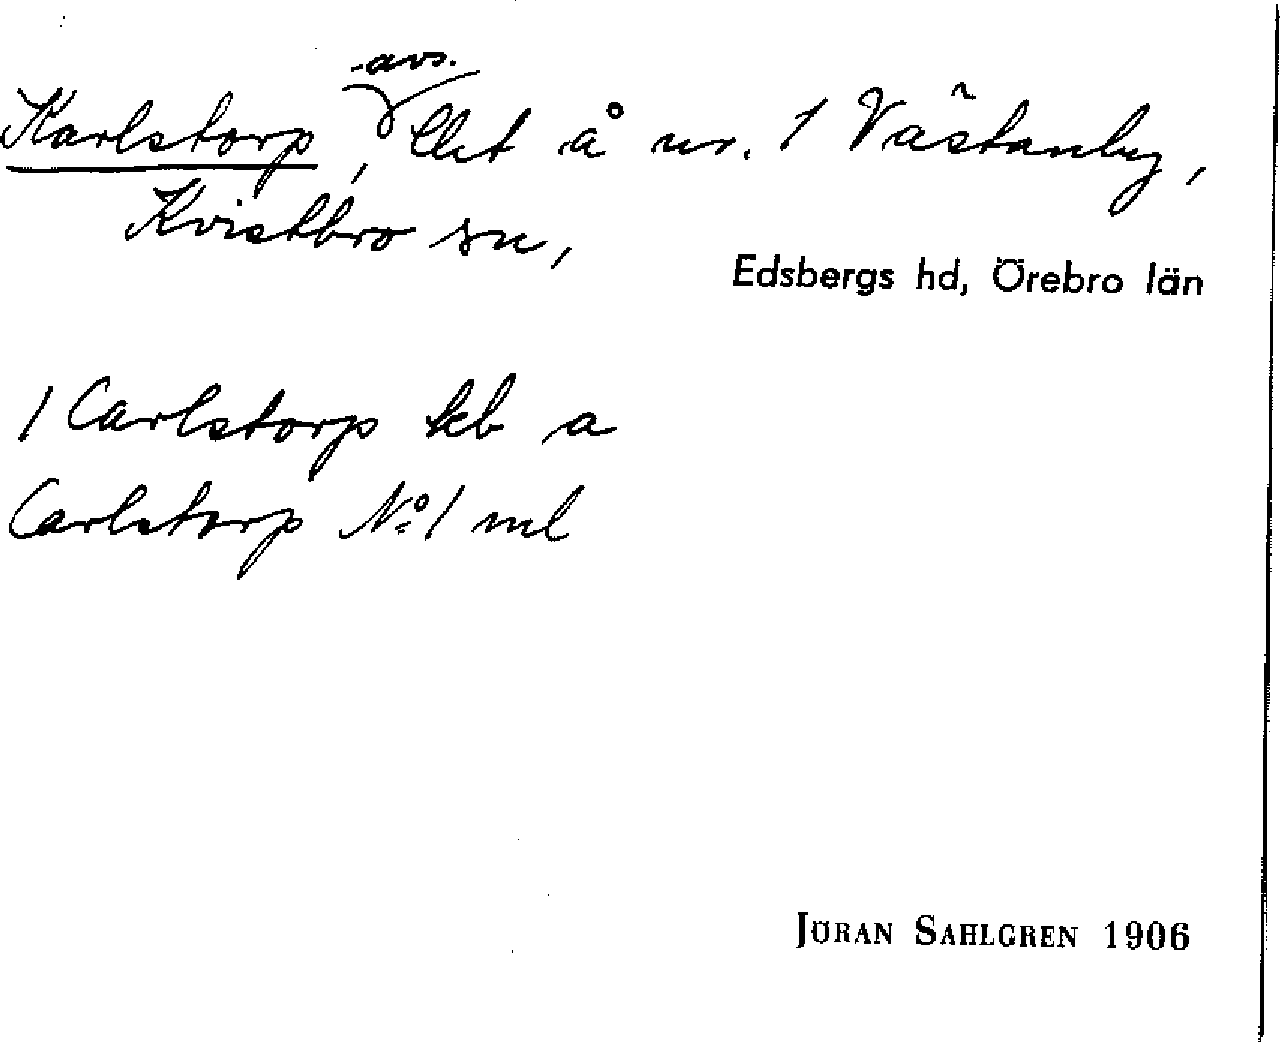 Karlstorp, avs. lht å nr. 1 Västanby,
Kvistbro sn,
Edsbergs hd, Örebro län
1 Carlstorp kb a
Carlstorp No 1 ml
JÖRAN SAHLGREN 1906